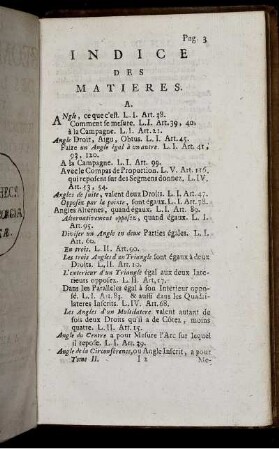 Pag. 3
INDICE
DES
MATIERES.
A.
ANgle, ce que c'est. L. I. Art. 38.
Comment se mesure. L. I. Art. 39, 40.
à la Campagne. L. I. Art. 21.
Angle Droit, Aigu, Obtus. L. I. Art. 45.
Faire un Angle égal à un autre. L. I. Art. 41,
98, 120.
A la Campagne. L. I. Art. 99.
Avec le Compas de Proportion. L. V. Art. 116,
qui reposent sur des Segmens donnez. L. IV.
Art. 53, 54.
Angles de suite, valent deux Droits. L. I. Art. 47.
Opposez par la pointe, sont égaux. L. I. Art. 78.
Angles Alternes, quand égaux. L. I. Art. 89.
Alternativement opposez, quand égaux. L. I.
Art. 95.
Diviser un Angle en deux Parties égales. L. I.
Art. 60.
En trois. L. II. Art. 90.
Les trois Angles d'un Triangle sont égaux à deux
Droits. L. II. Art. 10.
L'exterieur d'un Triangle égal aux deux Inte-
rieurs opposez. L. II. Art. 17.
Dans les Paralleles égal à son Interieur oppo-
sé. L. I. Art. 83. & aussi dans les Quadri-
lateres Inscrits. L. IV. Art. 68.
Les Angles d'un Multilatere valent autant de
fois deux Droits qu'il a de Côtez, moins
quatre. L. II. Art. 15.
Angle du Centre a pour Mesure l'Arc sur lequel
il repose. L. I. Art. 39.
Angle de la Circonference, ou Angle Inscrit, a pour
Tome II. I 2 Me-
HECS.
Æ.